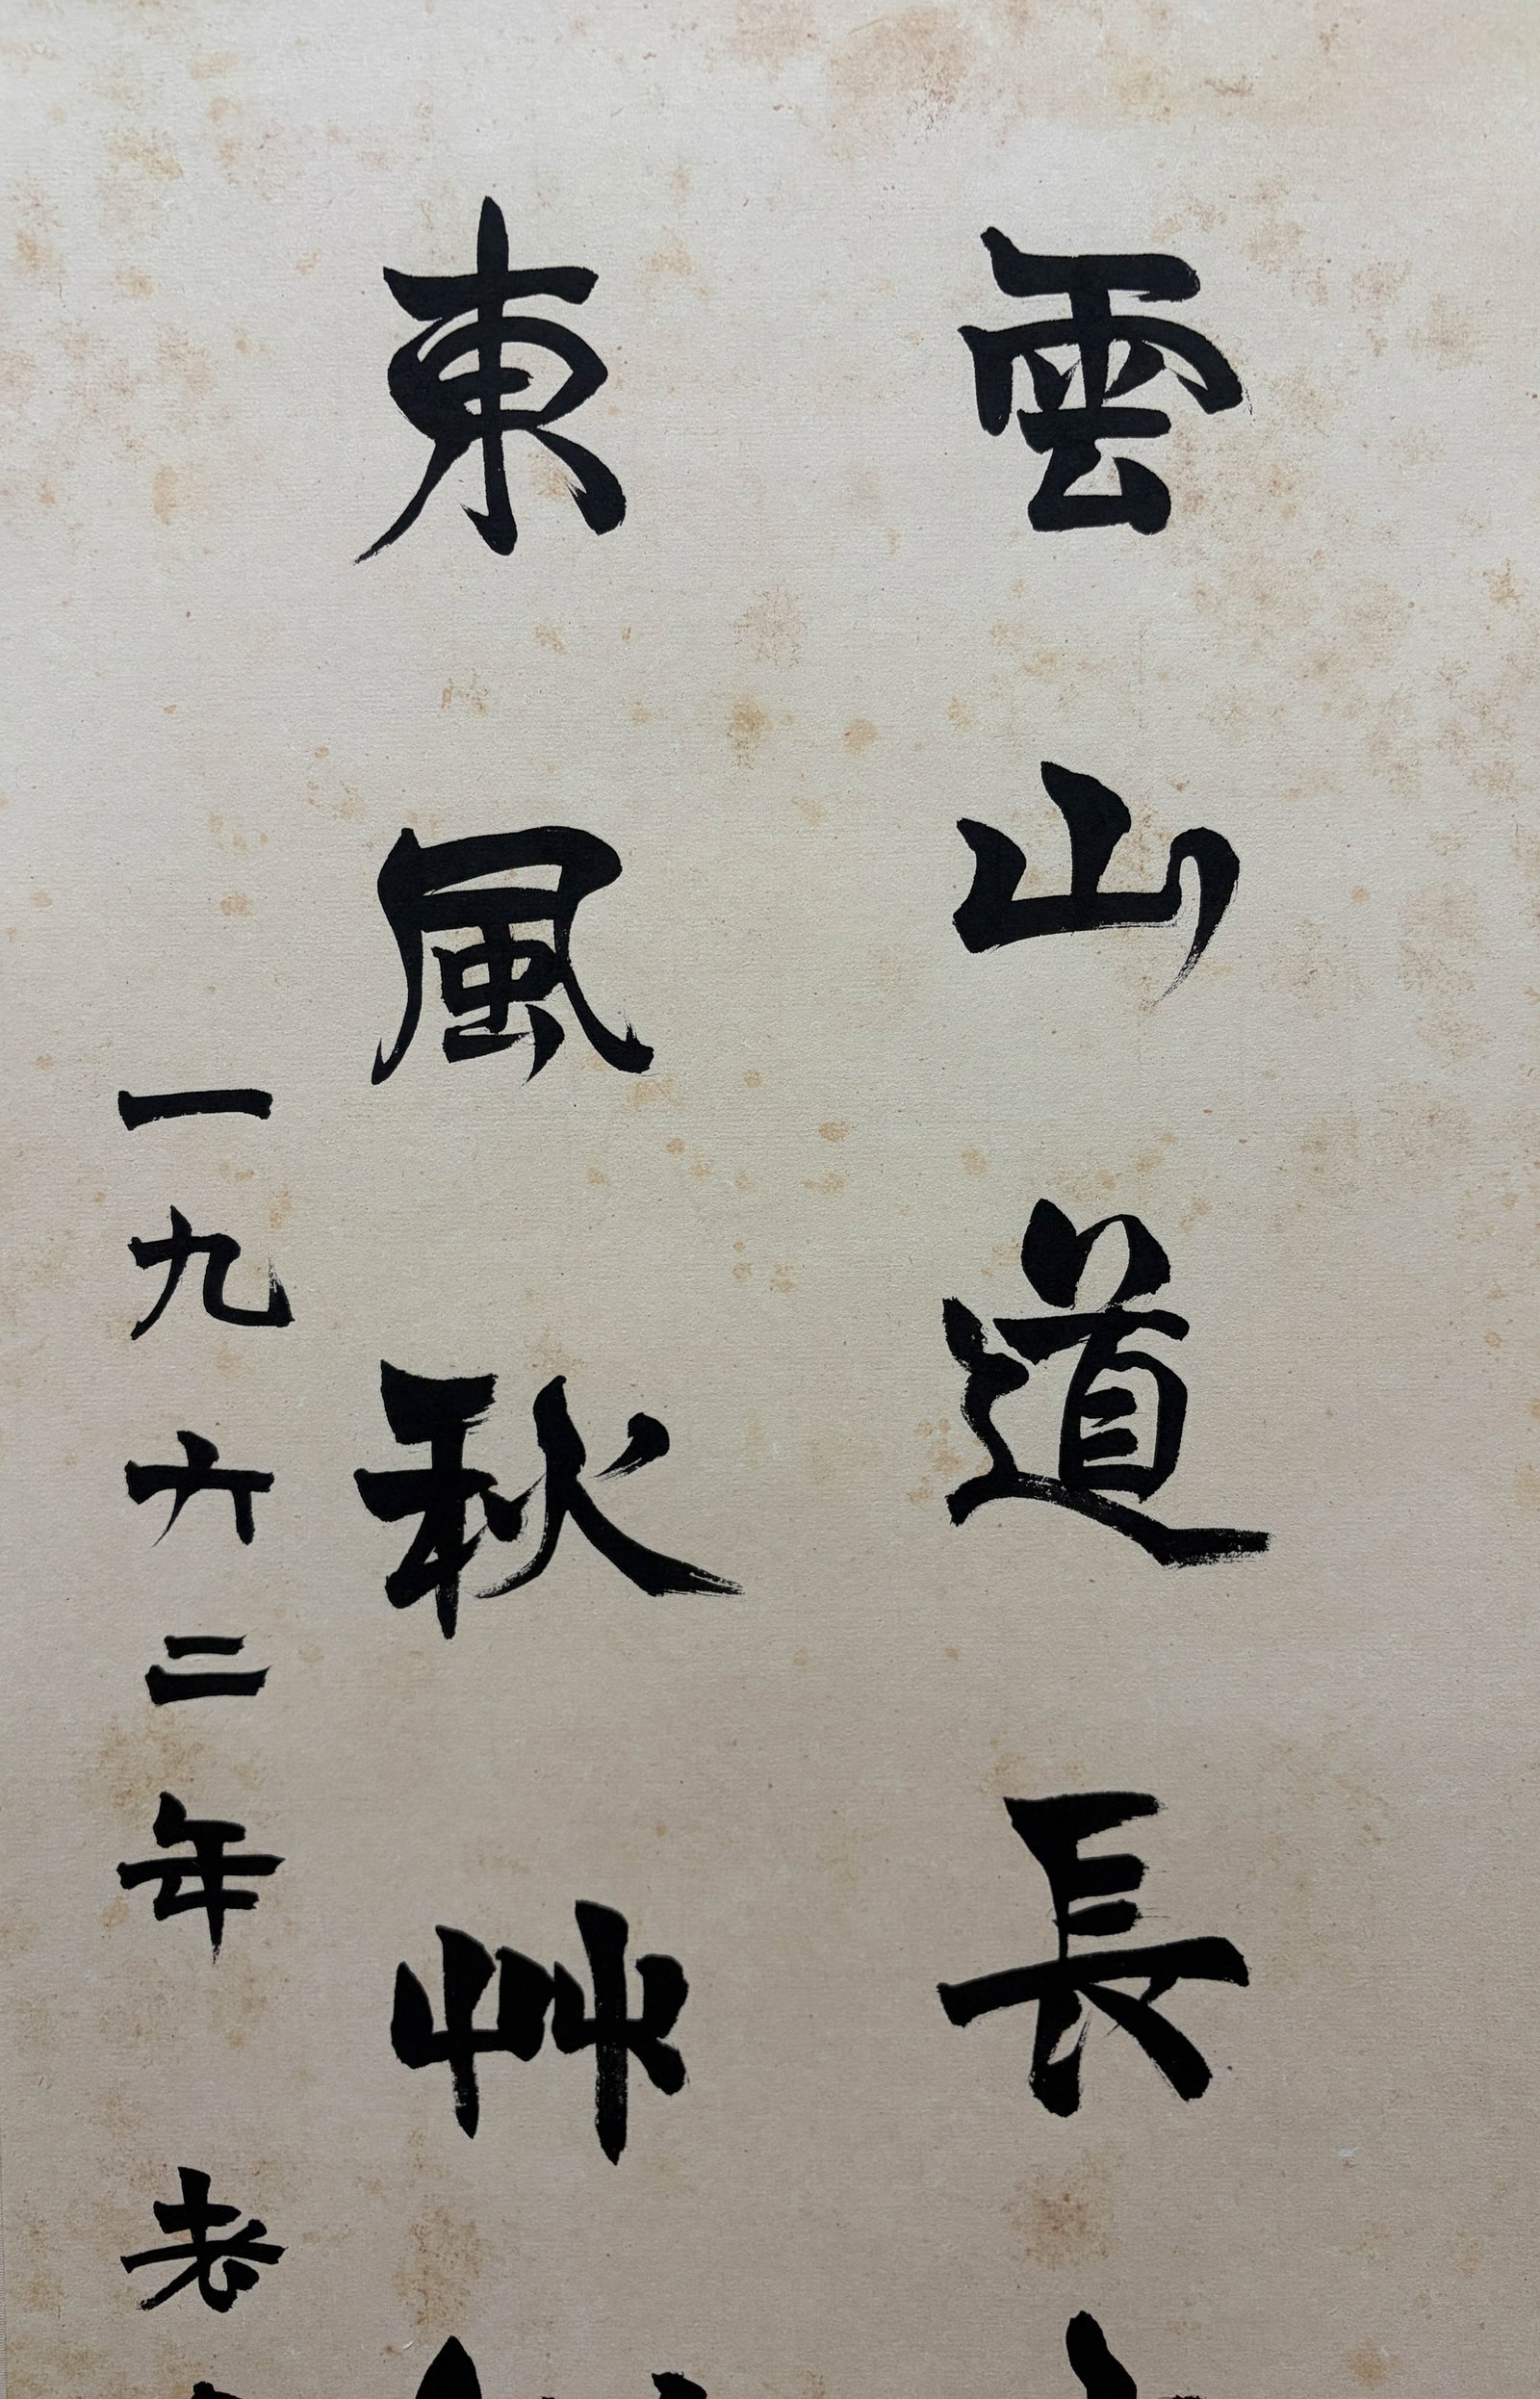 雲山道長
東風秋艸
一九六二年 老